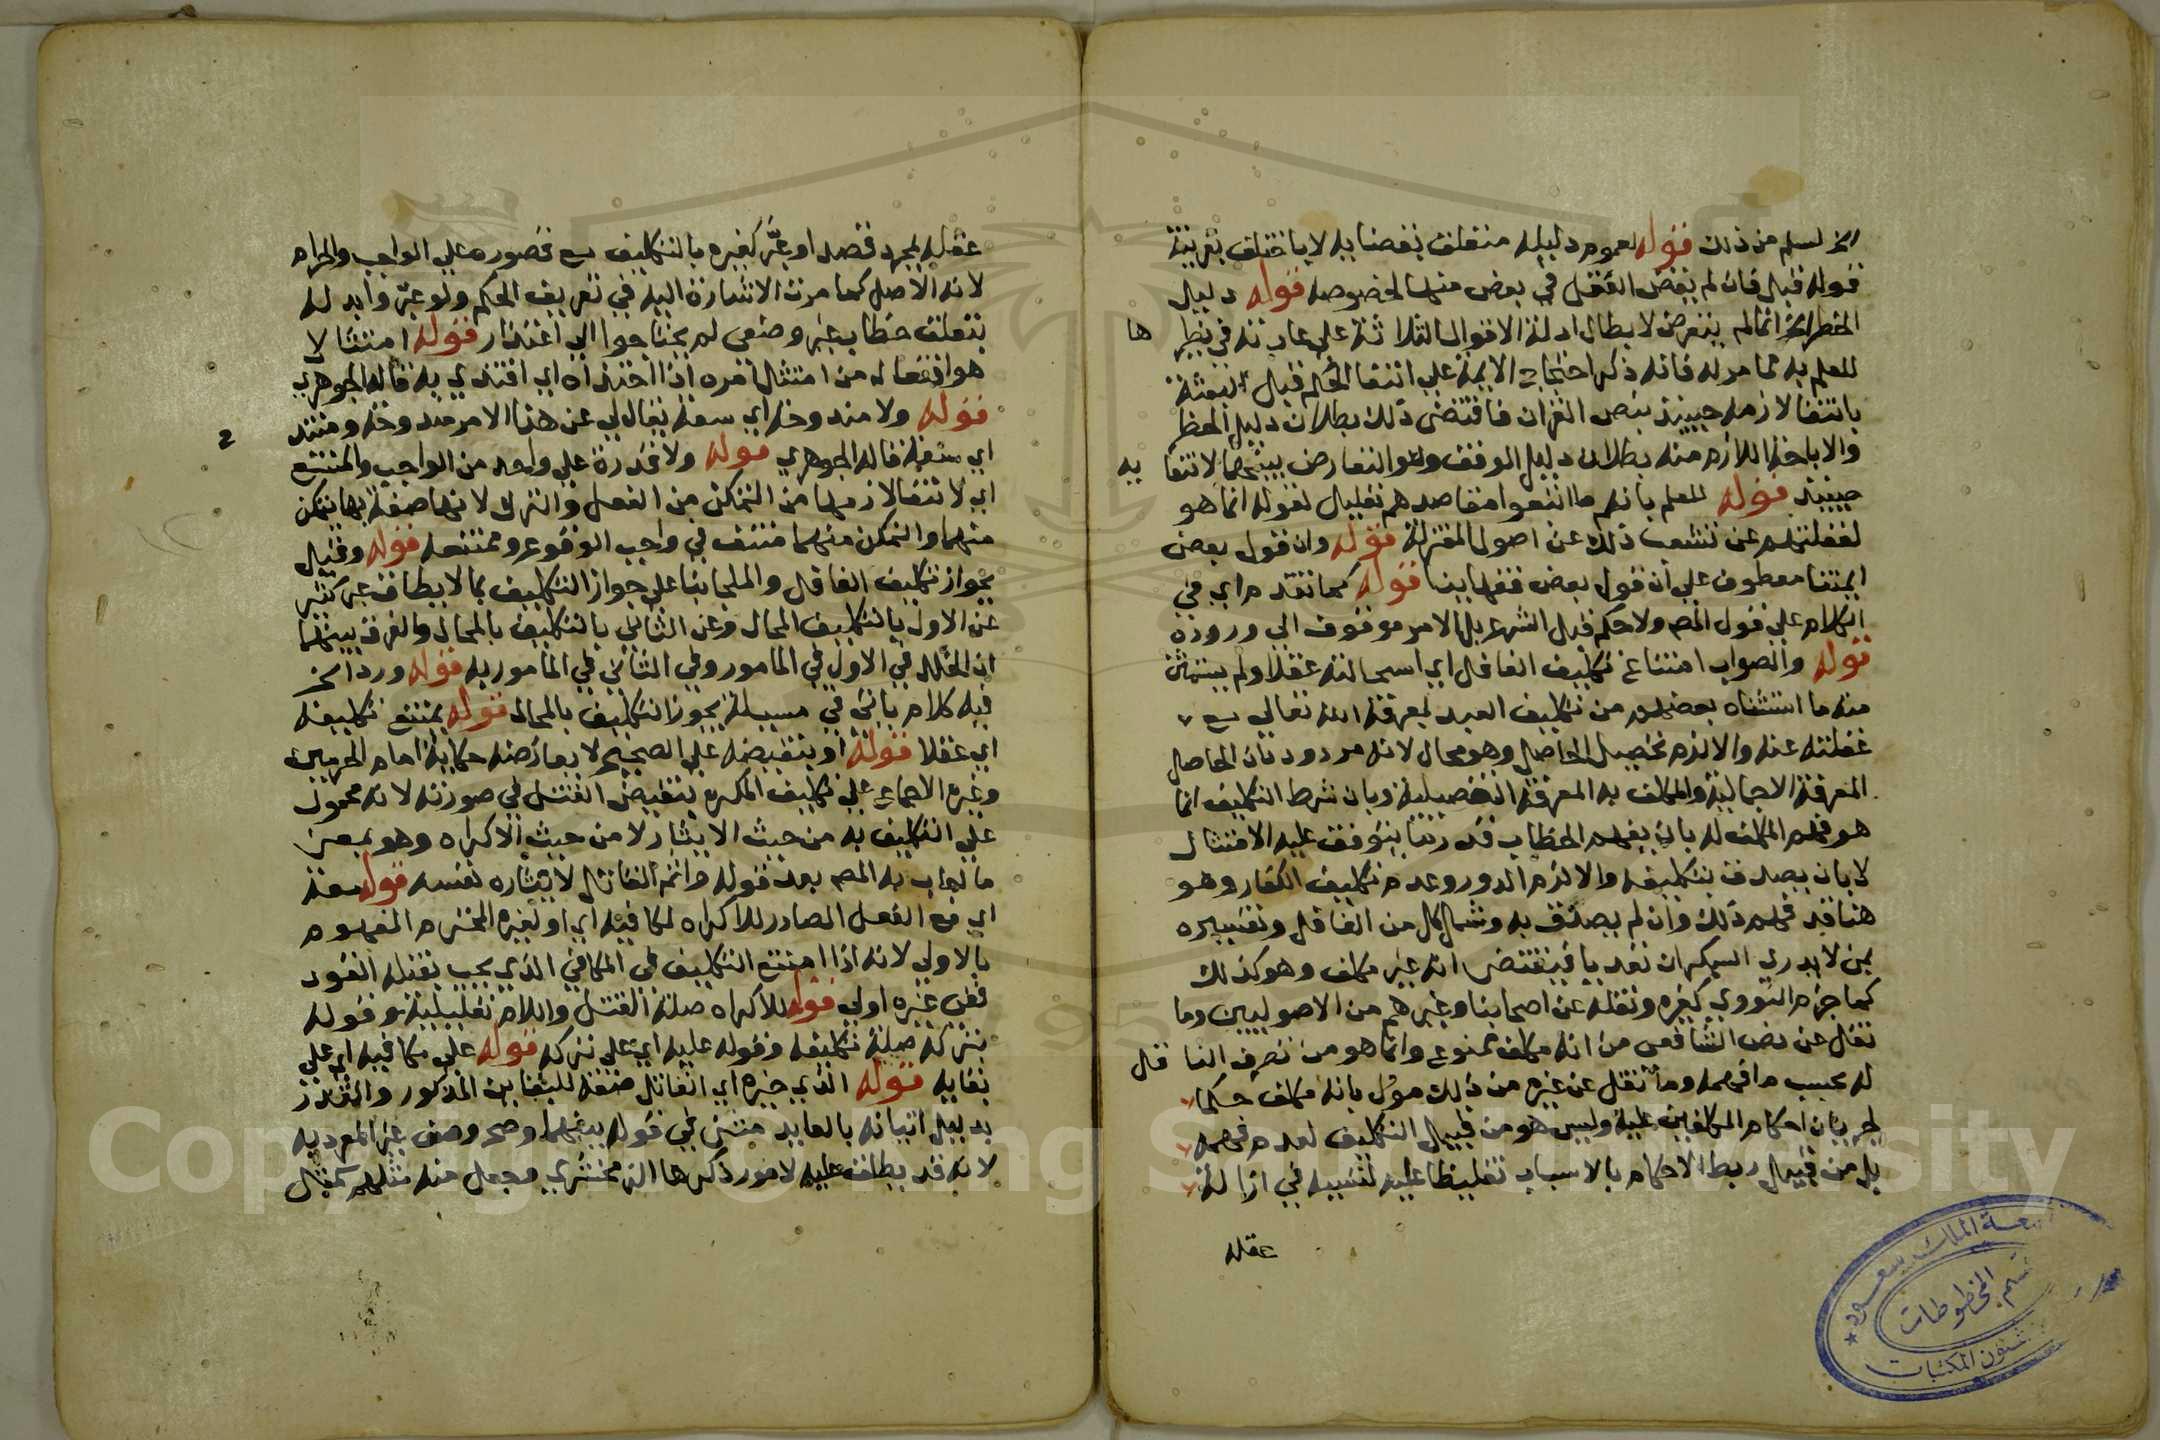 الخ لسلم من ذلك قوله لعموم دليله متعلق بقضا به لا باختلف بقرينة
قوله قبل فان لم يقض العقل في بعض منها لخصوصه قوله دليل
الحظر الخ انما لم يتعرض لابطال ادلة الاقوال الثلاثة على عادته في نظيرها
للعلم به مما مر له فانه ذكر احتجاج الايمة على انتفا الحكم قبل البعثة
بانتفا لازمه حينيذ بنص القران فاقتضى ذلك بطلان دليل الحظر
والاباحة اللازم منه بطلان دليل الوقف وهو التعارض بينهما لانتفايه
حينيذ قوله للعلم بانهم ما اتبعوا مقاصدهم تعليل لقوله انما هو
لغفلتهم عن تشعب ذلك عن اصول المعتزلة قوله وان قول بعض
ايمتنا معطوف على ان قول بعض فقهاينا قوله كما تقدم اي في
الكلام على قول المص ولا حكم قبل الشرع بل الامر موقوف الى وروده
قوله والصواب امتناع تكليف الغافل اي استحالته عقلا ولم يستثن
منه ما استثناه بعضهم من تكليف العبد لمعرفة الله تعالى مع
غفلته عنه والا لزم تحصيل الحاصل وهو محال لانه مردود بان الحاصل
المعرفة الاجمالية والمكلف به المعرفة التفصيلية وبان شرط التكليف انما
هو فهم المكلف له بان يفهم الخطاب قدر ما يتوقف عليه الامتثال
لا بان يصدق بتكليفه والا لزم الدور وعدم تكليف الكفار وهو
هنا قد فهم ذلك وان لم يصدق به وشمل كل من الغافل وتفسيره
بمن لا يدري السكران تعديا فيقتضى انه غير مكلف وهو كذلك
كما جزم النووي كغيره ونقله عن اصحابنا وغيرهم من الاصوليين وما
نقل عن نص الشافعي من انه مكلف ممنوع وانما هو من تصرف الناقل
له بحسب ما فهمه وما نقل عن غيره من ذلك مؤل بانه مكلف حكما
لجريان احكام المكلفين عليه وليس هو من قبيل التكليف لعدم فهمه
بل من قبيل ربط الاحكام بالاسباب تغليظا عليه لتسببه في ازالة
عقله
جامعة الملك سعود
قسم المخطوطات
شئون المكتبات
عقله لمجرد قصد او عبّر كغيره بالتكليف مع قصوره على الواجب والحرام
لانه الاصل كما مرت الاشارة اليه في تعريف الحكم ولو عبّر وابدله
بتعلق خطاب غير وضعي لم يحتاجوا الى اعتذار قوله امتثالا
هو افتعال من امتثل امره اذا احتذاه اي اقتدي به قاله الجوهري
قوله ولا مندوحة اي سعة يقال لي عن هذا الامر مندوحة ومنتدح
اي سعة قاله الجوهري قوله ولا قدرة على واحد من الواجب والممتنع
اي لانتفا لازمها من التمكن من الفعل والترك لانها صفة بها يتمكن
منهما والتمكن منهما منتف في واجب الوقوع وممتنعه قوله وقيل
بجواز تكليف الغافل والملجا بنا على جواز التكليف بما لا يطاق عبر كثير
عن الاول بالتكليف المحال وعن الثاني بالتكليف بالمحال والفرق بينهما
ان الخلل في الاول في المامور وفي الثاني في المامور به قوله ورد الخ
فيه كلام ياتي في مسيلة يجوز التكليف بالمحال قوله يمتنع تكليفه
اي عقلا قوله او بنقيضه على الصحيح لا يعارضه حكاية امام الحرمين
وغيره الاجماع على تكليف المكره بنقيض القتل في صورته لانه محمول
على التكليف به من حيث الايثار لا من حيث الاكراه وهو بمعنى
ما يجاب به المص بعد قوله واثم القاتل لايثاره نفسه قوله معه
اي مع الفعل الصادر للاكراه لمكافيه اي او لغيره المحترم المفهوم
بالاولى لانه اذا امتنع التكليف في المكافي الذي يجب بقتله القود
ففي غيره اولى قوله للاكراه صلة القتل واللام تعليلية وقوله
بتركه صلة تكليفه وقوله عليه اي على تركه قوله على مكافيه اي على
بقايه قوله الذي خيره اي القاتل صفة للبقا بين المذكور والمقدر
بدليل اتيانه بالعايد مثنى في قوله بينهما وصح وصف غير المعرد به
لانه قد يطلق عليه لامور ذكرها الزمخشري وجعل منه مثلهم كمثل
Copyright © King Saud University